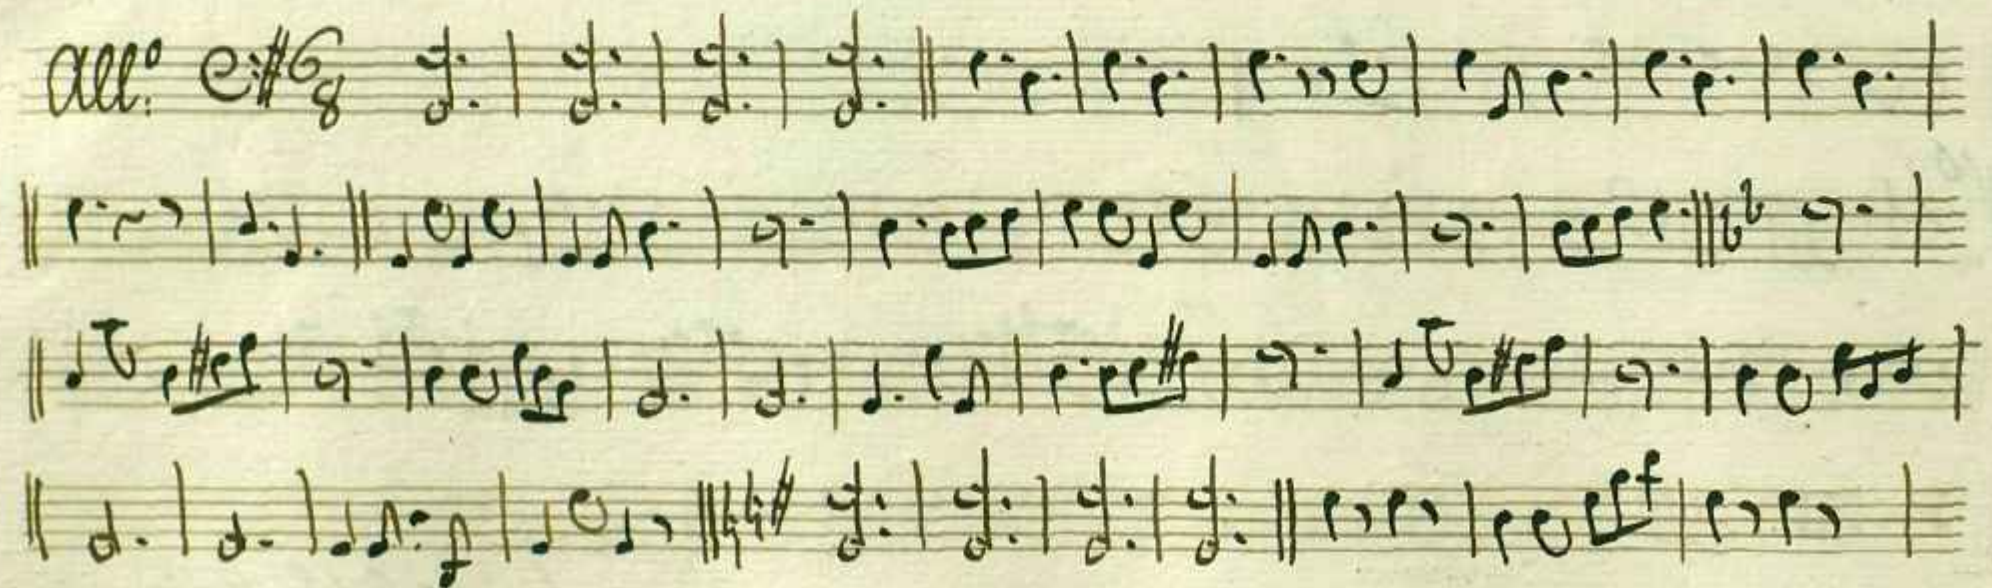 All.º 6
8